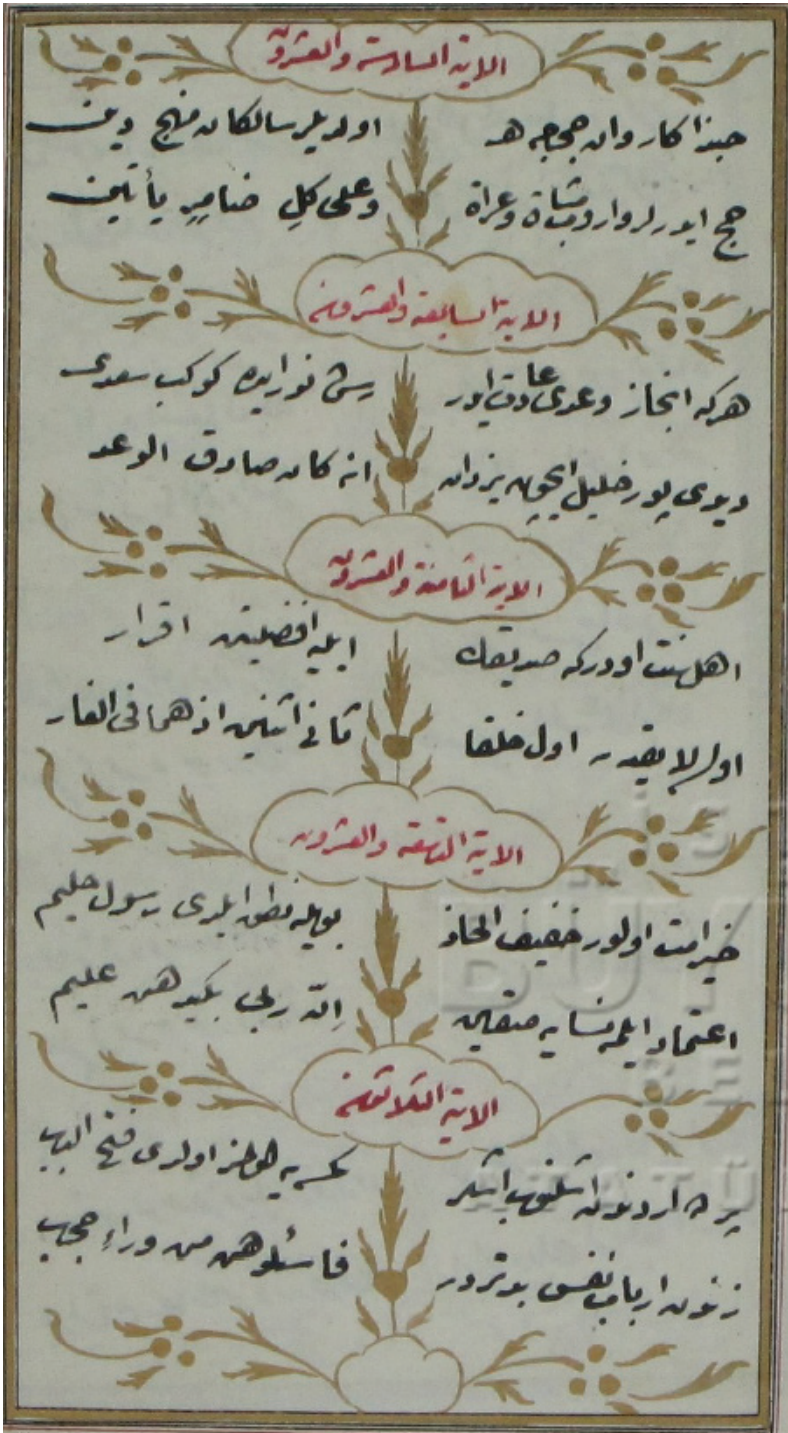 الآية السادسة والعشرون
حبذا كاروان حجاجه هر اولديلر سالكان منهج دين
حج ايدرلر وارد مشاة وعراة وعلى كل ضامر يأتين
الآية السابعة والعشرون
هركه انجاز وعدى عادت ايدر رش نور ايده كوكب سعدى
ديدى پور خليل ايچون يزدان انه كان صادق الوعد
الآية الثامنة والعشرون
اهل سنت اودركه صديقك ايليه افضليتن اقرار
اولدر لايقدر اول خلفا ثانى اثنين اذ هما فى الغار
الآية التاسعة والعشرون
خير امت اولور خفيف الحاذ بويله نطق ايلدى رسول حليم
اعتماد ايلمه نسايه صقين ان ربى بكيدهن عليم
الآية الثلاثون
پرده اردندن ايشكر كمسه يه جائز اولدى فتح الباب
زنون ارباب نفس بدتردر فاسئلوهن من وراء حجاب